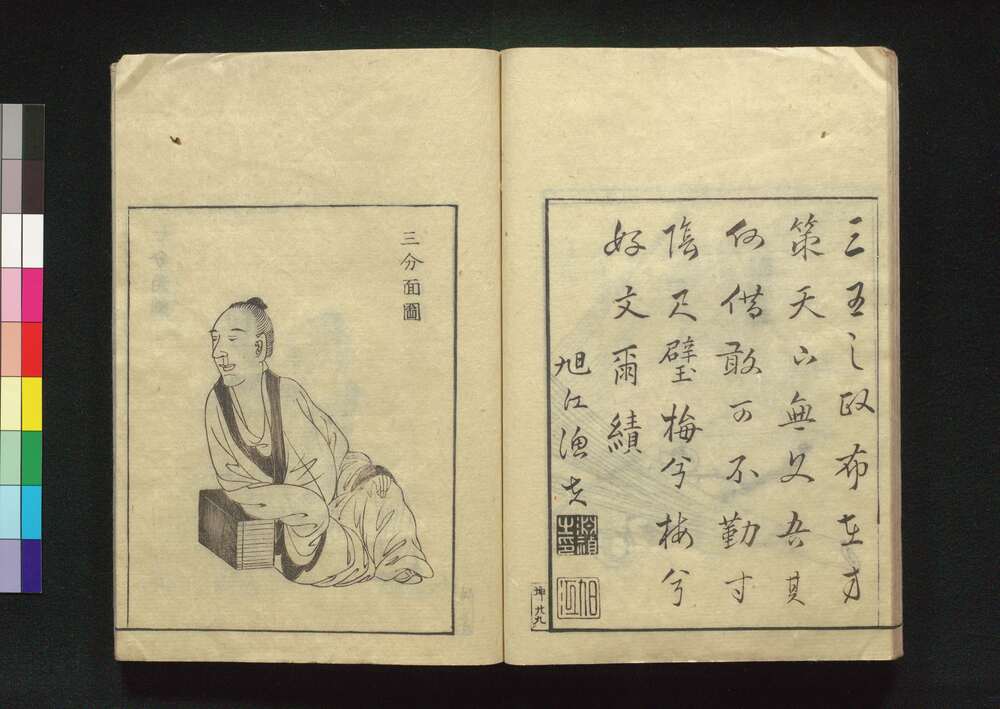 三五之政布在方
策天下無父吾其
何借敢可不勤寸
陰尺璧梅兮梅兮
好文爾績
旭江漁夫
旭江
坤 廿九
三分面圖